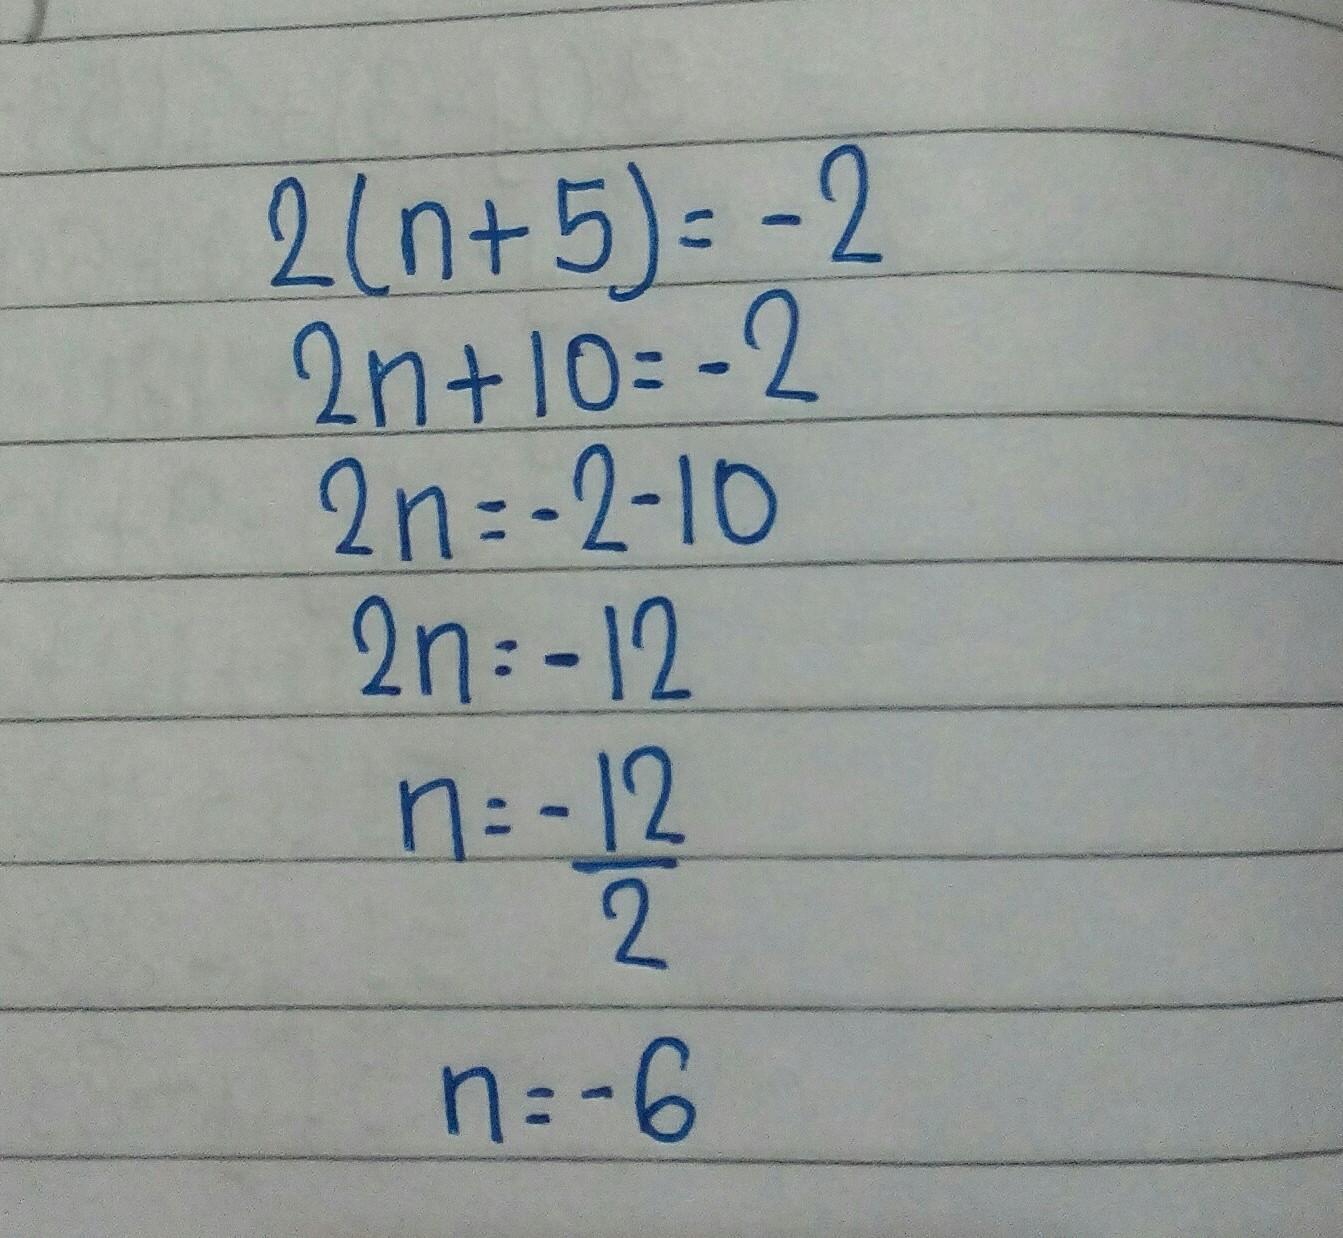 2(n+5)=-2
2n+10=-2
2n=-2-10
2n=-12
n=-12
2
n=-6